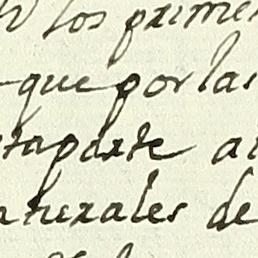 los primer
que por las
ta parte a
turales de